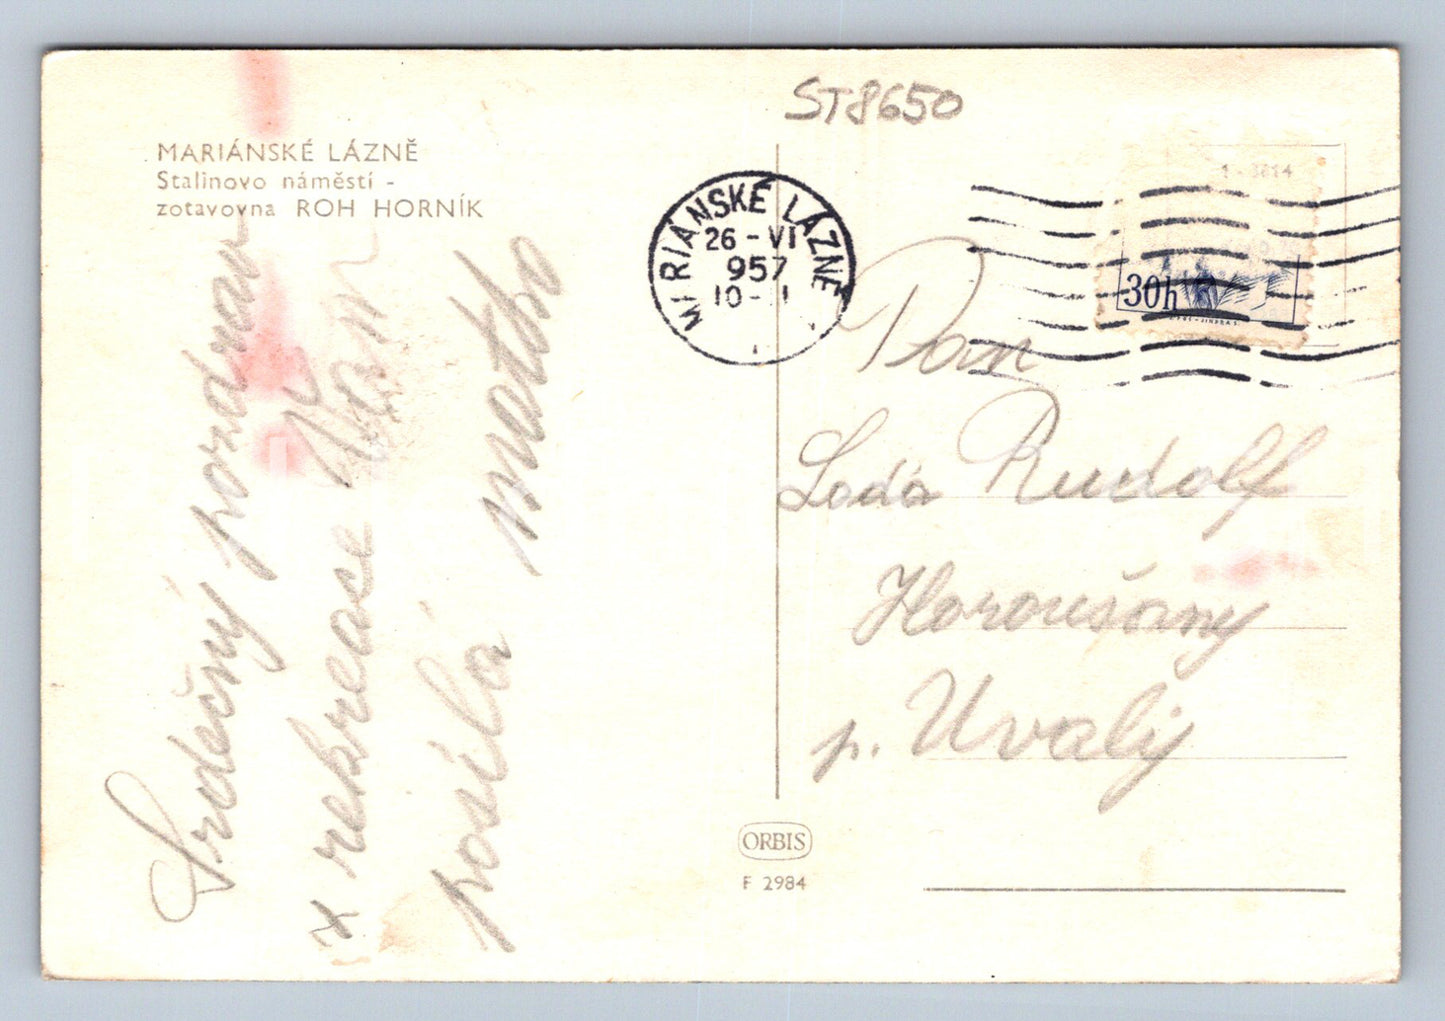 ST8650
MARIÁNSKÉ LÁZNĚ
Stalinovo náměstí -
zotavovna ROH HORNÍK
MARIÁNSKÉ LÁZNĚ
26 - VI
957
10 -
30h
Srdečný pozdrav
z rekreace Vám
posílá matka
Pan
Loda Rudolf
Horoušany
p. Uvaly
ORBIS
F 2984